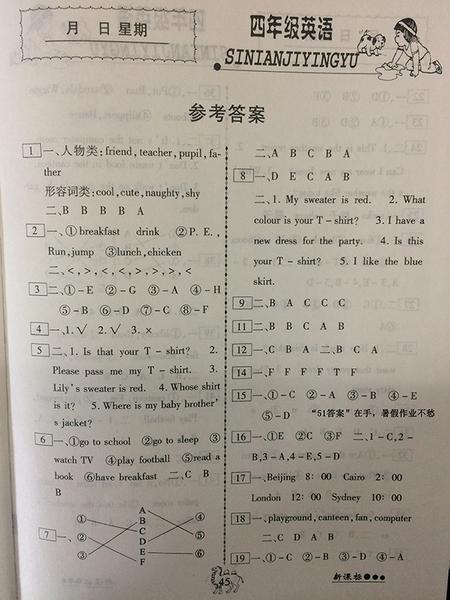 月 日 星期
四年级英语
SINIANJIYINGYU
参考答案
1 一、人物类: friend, teacher, pupil, fa-
ther
形容词类: cool, cute, naughty, shy
二、B B B B A
2 一、①breakfast drink ②P. E. ,
Run, jump ③lunch, chicken
二、<, >, <, <, >, >, >, <
3 二、①-E ②-G ③-A ④-H
⑤-B ⑥-D ⑦-C ⑧-F
4 一、1. √ 2. √ 3. ×
5 二、1. Is that your T-shirt? 2.
Please pass me my T-shirt. 3.
Lily's sweater is red. 4. Whose shirt
is it? 5. Where is my baby brother
's jacket?
6 一、①go to school ②go to sleep ③
watch TV ④play football ⑤read a
book ⑥have breakfast 二、C B
B
7 一、
① ② ③
A B C D E F
④ ⑤ ⑥
二、A B C B A
8 一、D E C A B
二、1. My sweater is red. 2. What
colour is your T-shirt? 3. I have a
new dress for the party. 4. Is this
your T-shirt? 5. I like the blue
skirt.
9 二、B A C C C
11 二、B B C A B
12 一、C B A 二、B C A
14 一、F F F F T F
15 一、①-C ②-A ③-B ④-E
⑤-D "51答案"在手,暑假作业不愁
16 一、①E ②C ③F 二、1-C, 2-
B, 3-A, 4-E, 5-D
17 一、Beijing 8:00 Cairo 2:00
London 12:00 Sydney 10:00
18 一、playground, canteen, fan, computer
二、C D A B
19 一、①-C ②-B ③-D ④-A
45
新课标